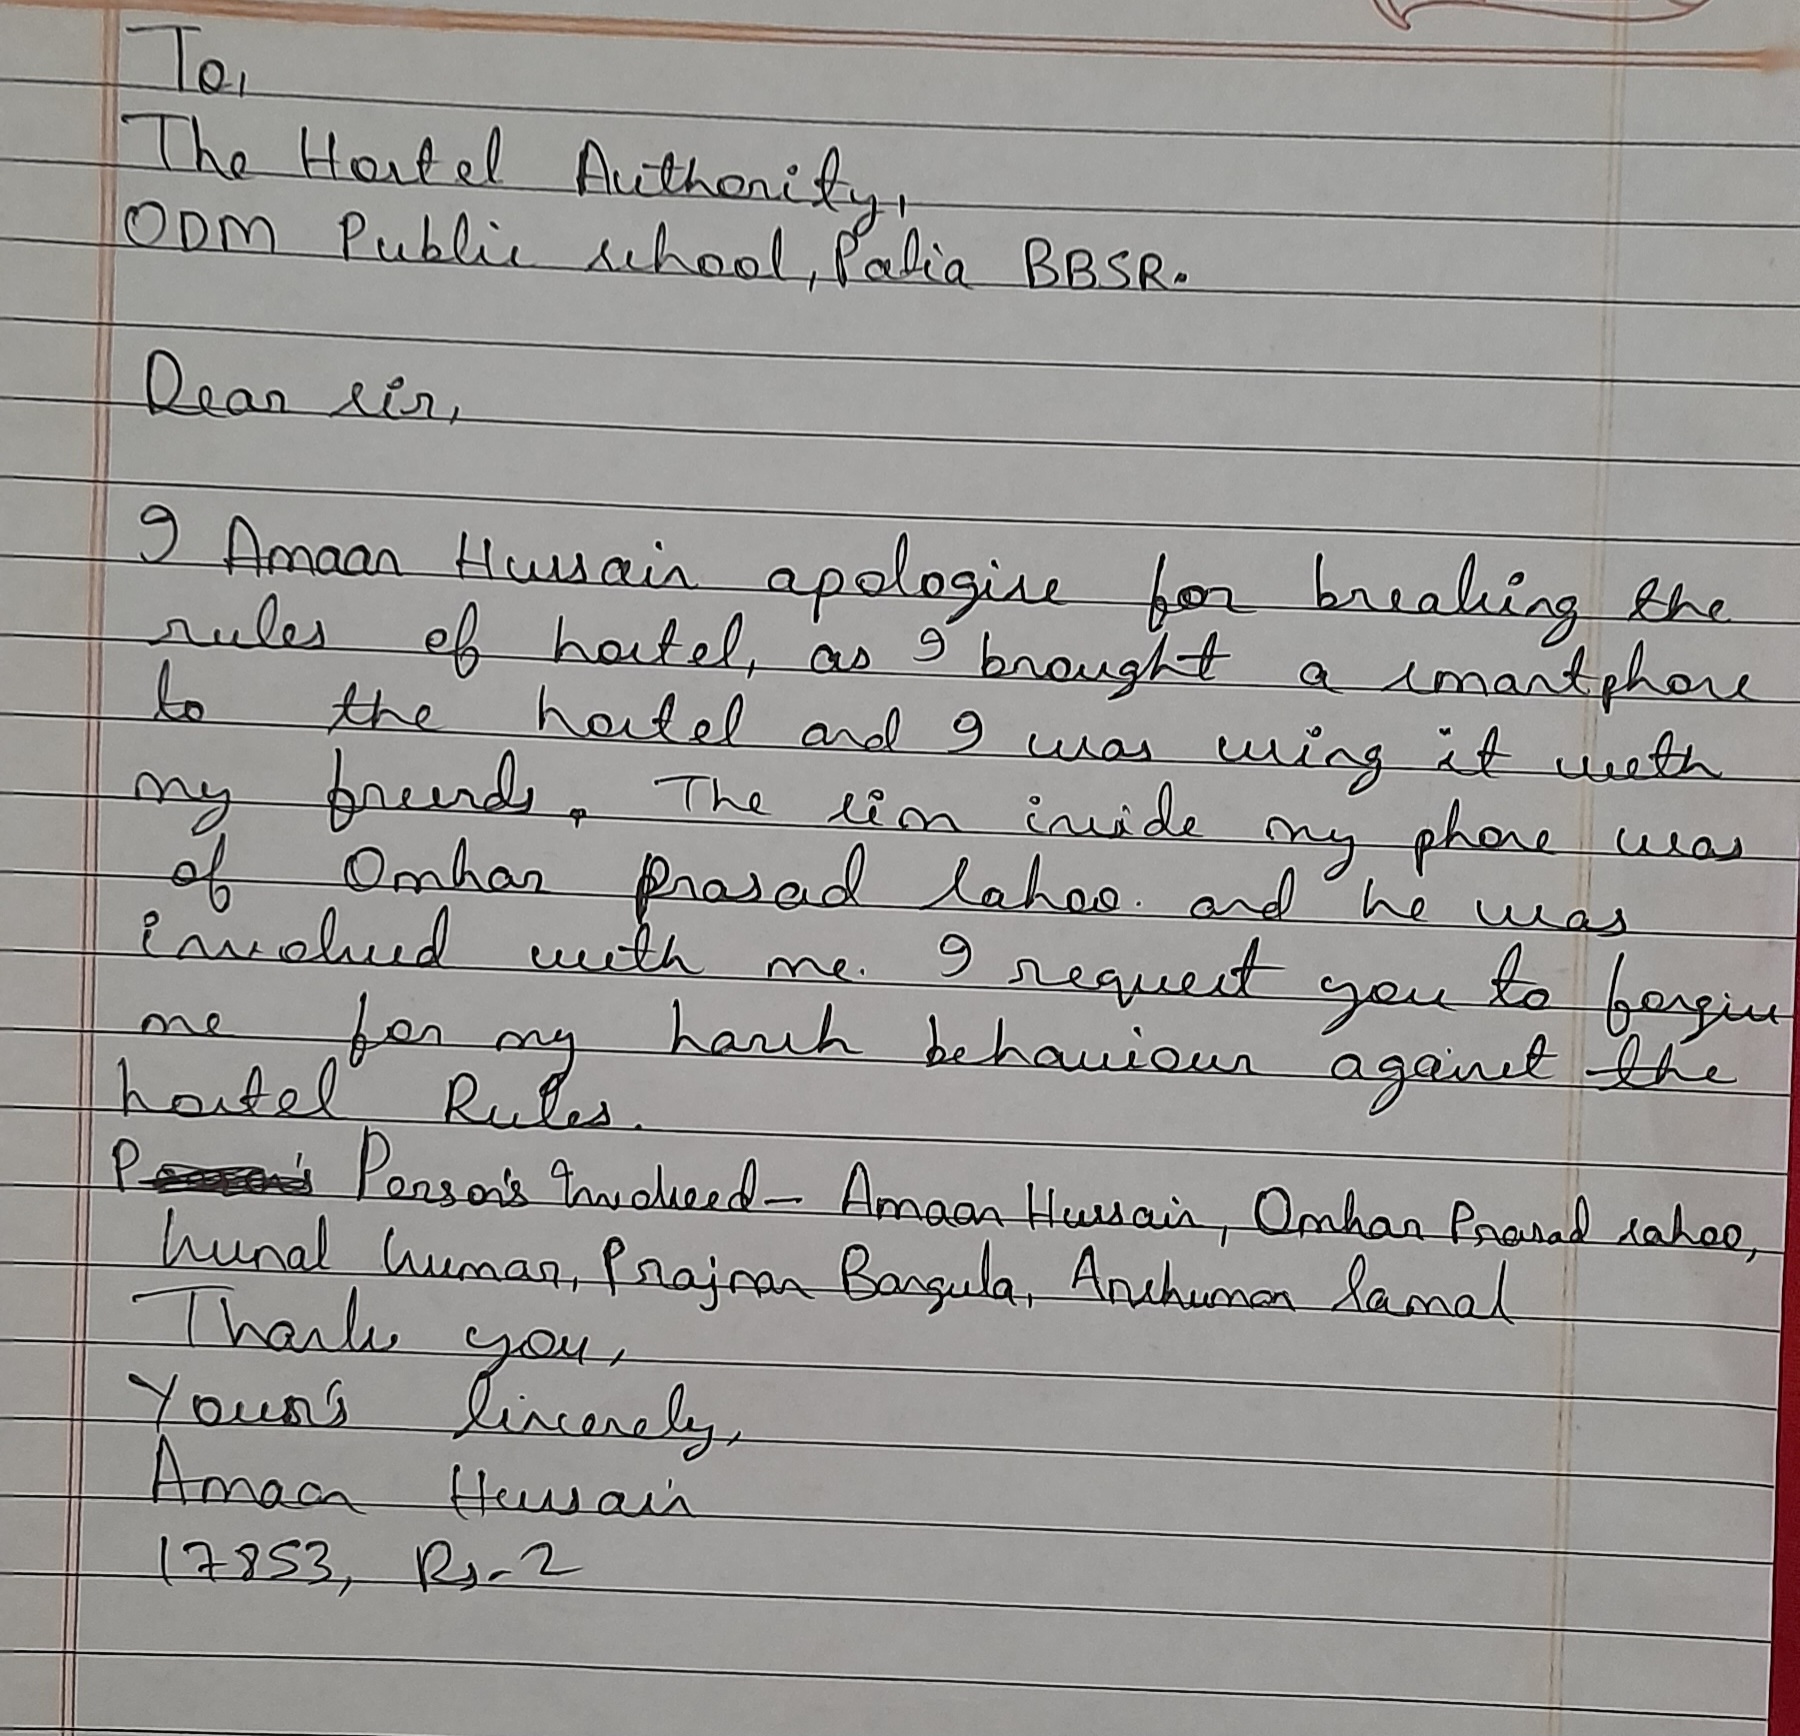 To,
The Hostel Authority,
ODM Public school, Patia BBSR.
Dear sir,
I Amaan Hussain apologise for breaking the
rules of hostel, as I brought a smartphone
to the hostel and I was using it with
my friends. The sim inside my phone was
of Omkar Prasad Sahoo. and he was
involved with me. I request you to forgive
me for my harsh behaviour against the
hostel Rules.
Person's Involved - Amaan Hussain, Omkar Prasad sahoo,
kunal kumar, Prajnan Bangula, Anshuman Samal
Thank you,
Your's Sincerely,
Amaan Hussain
17853, Rs-2